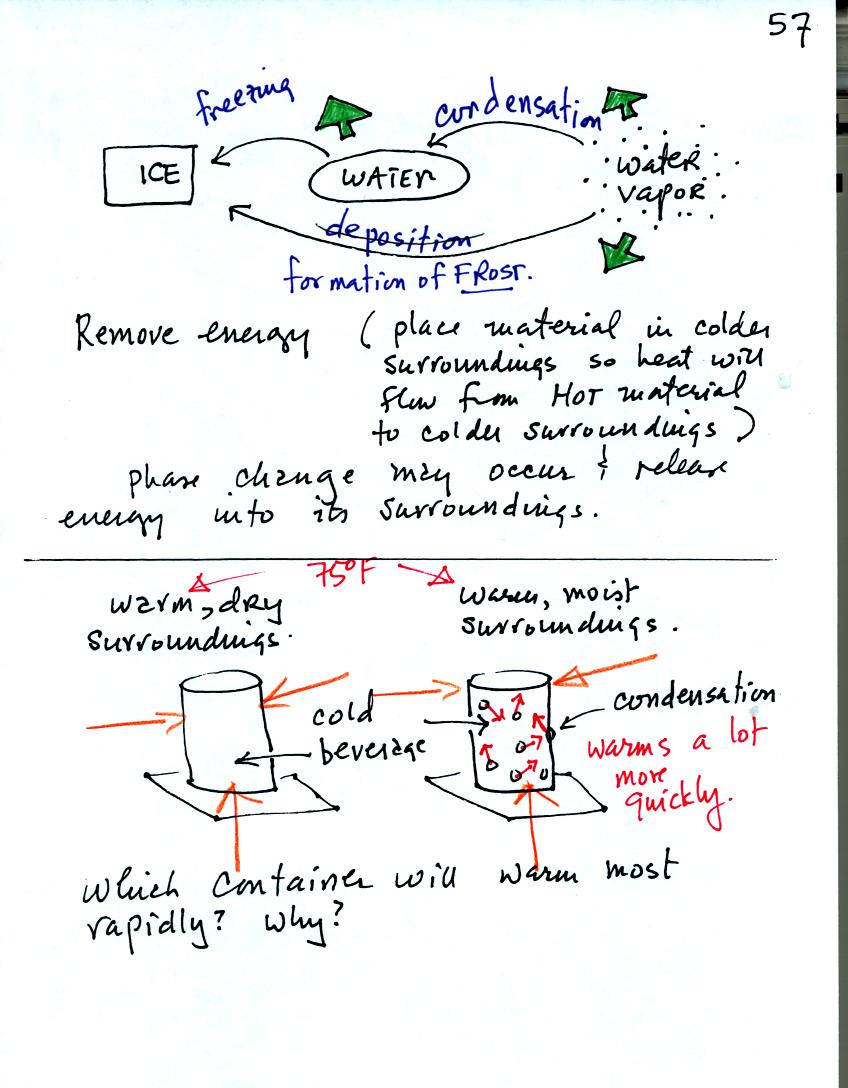 57
freezing
condensation
ICE
WATER
water
vapor
deposition
formation of FROST.
Remove energy ( place material in colder
surroundings so heat will
flow from HOT material
to colder surroundings )
phase change may occur & release
energy into its surroundings.
75°F
warm, dry
surroundings.
warm, moist
surroundings.
cold
beverage
condensation
warms a lot
more
quickly.
Which container will warm most
rapidly? Why?